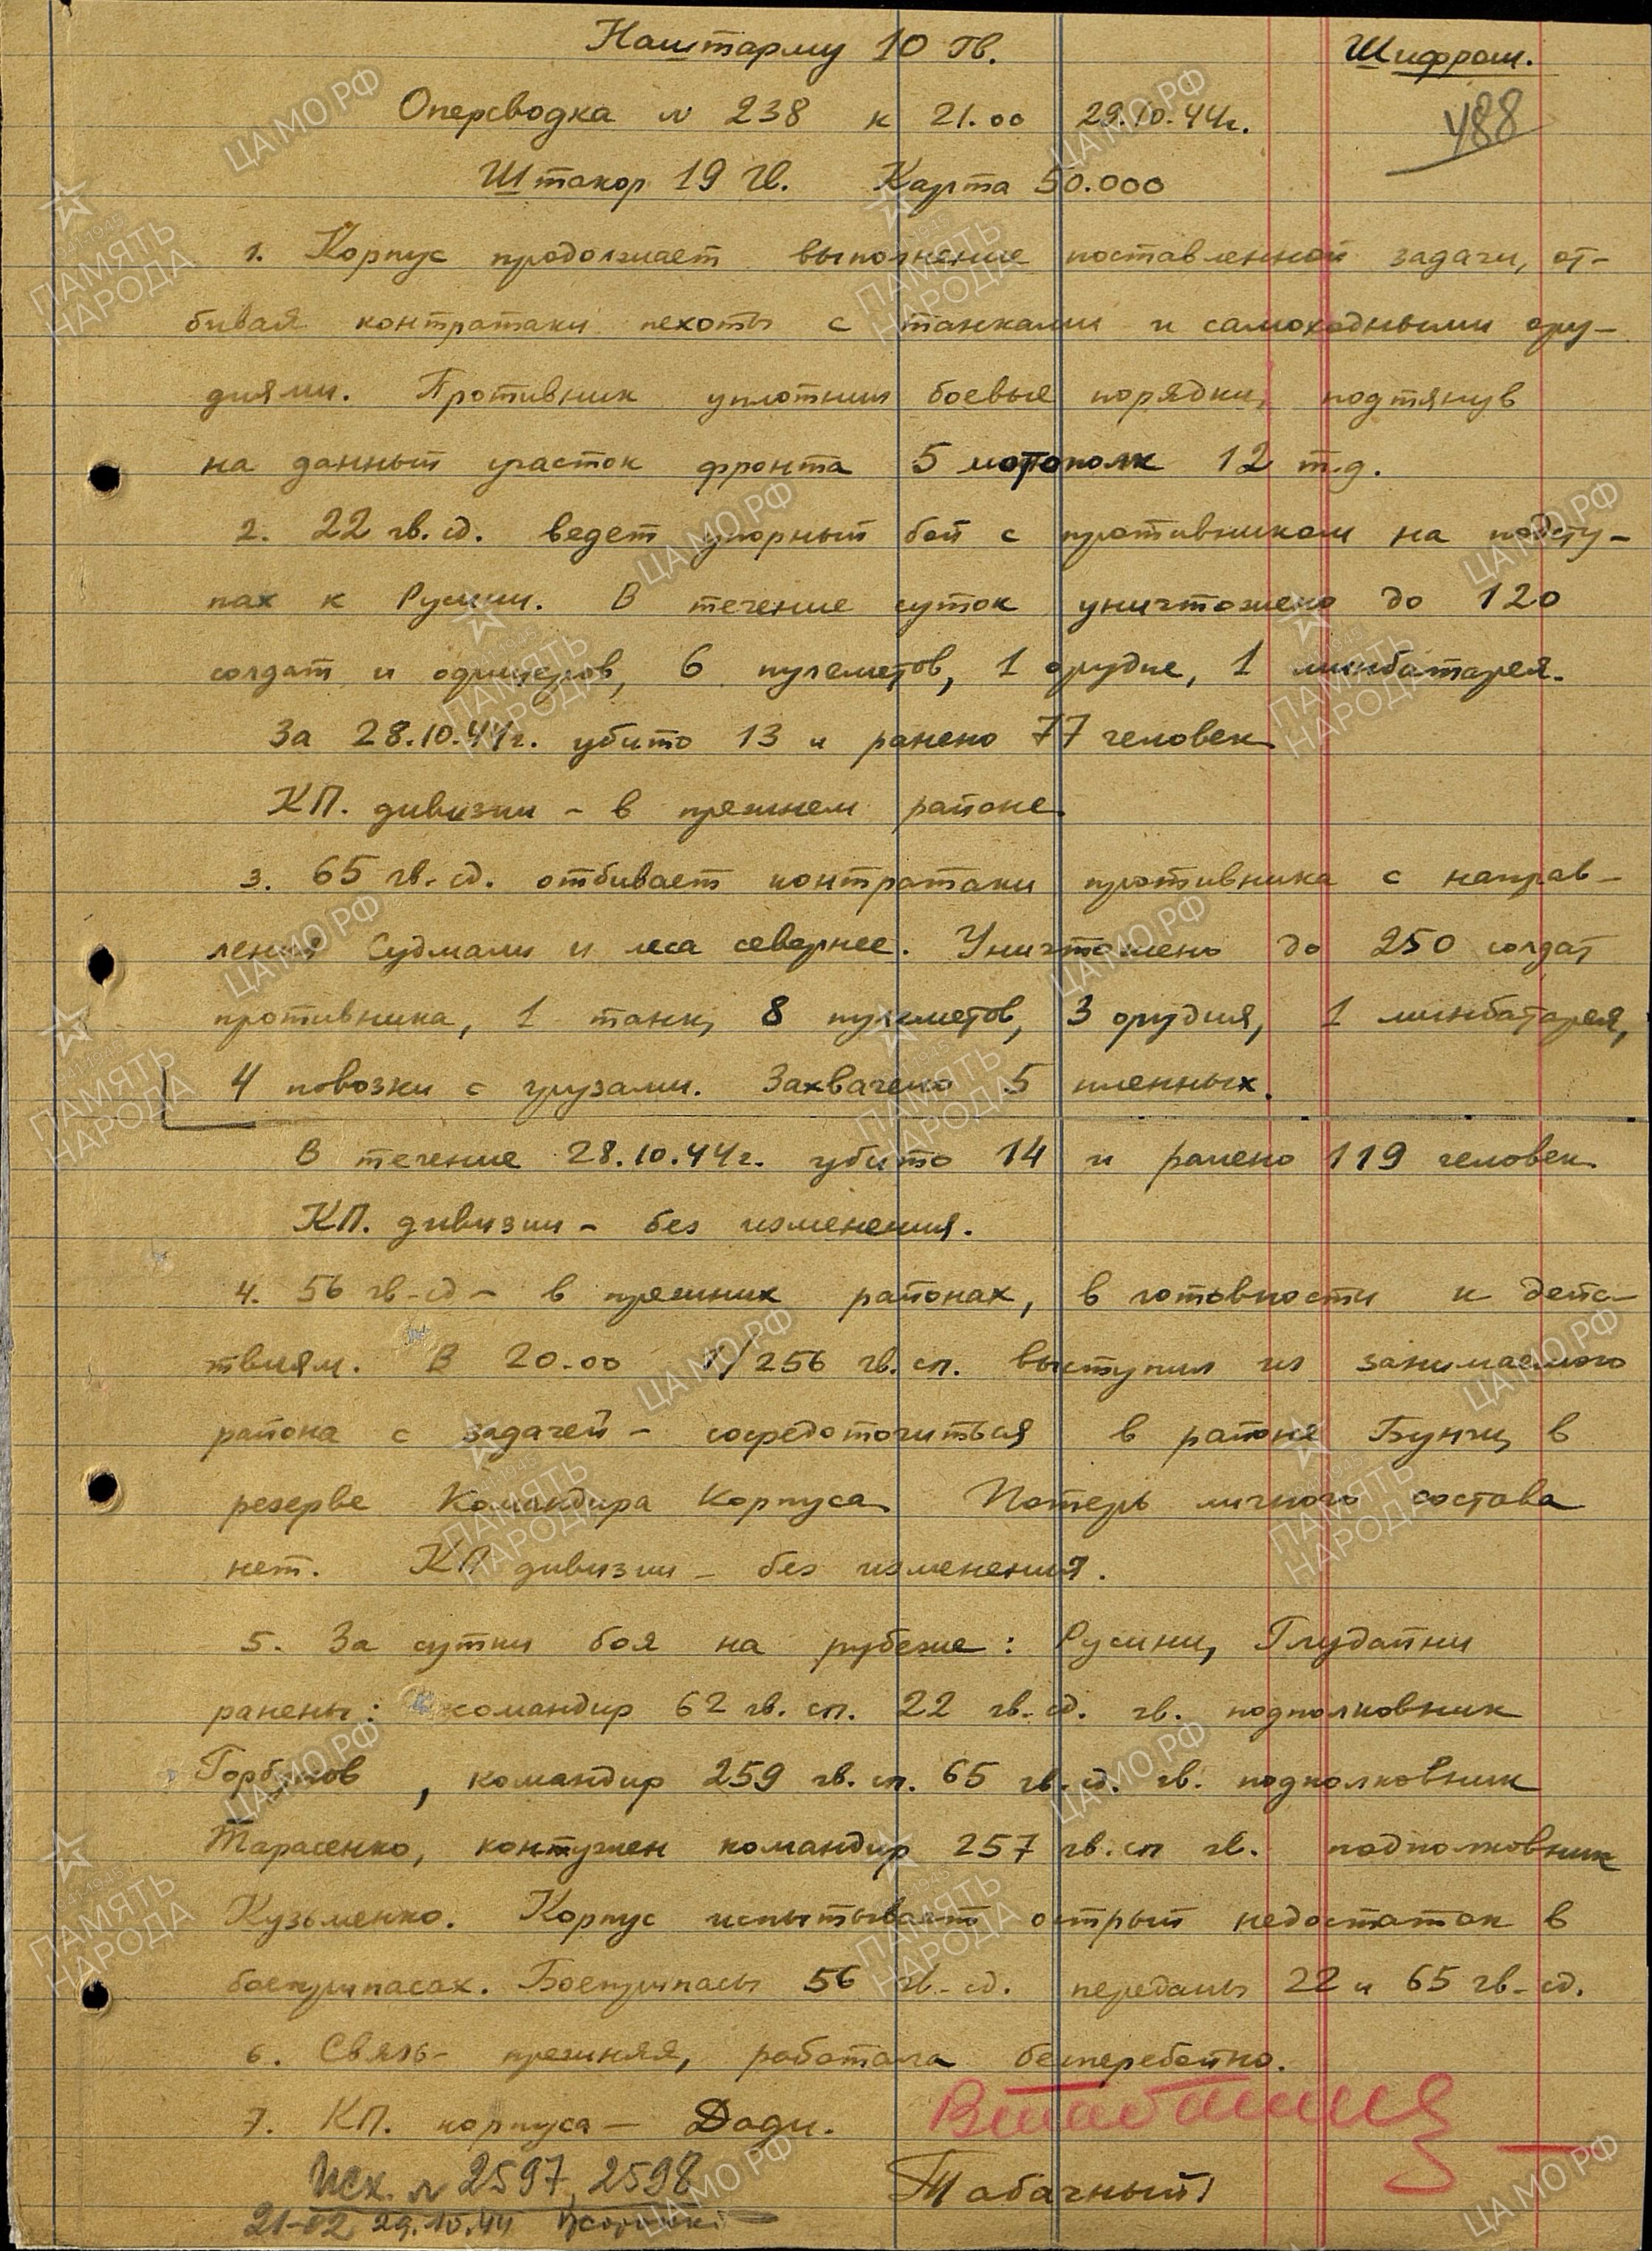 Наштарму 10 Гв.
Шифром.
Оперсводка № 238 к 21.00 29.10.44г.
488
Штакор 19 Гв. Карта 50.000
1. Корпус продолжает выполнение поставленной задачи, от-
бивая контратаки пехоты с танками и самоходными ору-
диями. Противник уплотнил боевые порядки, подтянув
на данный участок фронта 5 мотополк 12 т.д.
2. 22 гв. сд. ведет упорный бой с противником на подсту-
пах к Русиши. В течение суток уничтожено до 120
солдат и офицеров, 6 пулеметов, 1 орудие, 1 минбатарея.
За 28.10.44г. убито 13 и ранено 77 человек
КП. дивизии - в прежнем районе.
3. 65 гв. сд. отбивает контратаки противника с направ-
ления Судмали и леса севернее. Уничтожено до 250 солдат
противника, 1 танк, 8 пулеметов, 3 орудия, 1 минбатарея,
4 повозки с грузами. Захвачено 5 пленных.
В течение 28.10.44г. убито 14 и ранено 119 человек.
КП. дивизии - без изменения.
4. 56 гв. сд - в прежних районах, в готовности к дейс-
твиям. В 20.00 1/256 гв. сп. выступил из занимаемого
района с задачей - сосредоточиться в районе Бунчи, в
резерве Командира Корпуса. Потерь личного состава
нет. КП дивизии - без изменения.
5. За сутки боя на рубеже: Русини, Глудайни
ранены: командир 62 гв. сп. 22 гв. сд. гв. подполковник
Горбунов, командир 259 гв. сп. 65 гв. сд. гв. подполковник
Тарасенко, контужен командир 257 гв. сп гв. подполковник
Кузьменко. Корпус испытывает острый недостаток в
боеприпасах. Боеприпасы 56 гв. сд. переданы 22 и 65 гв. сд.
6. Связь - прежняя, работала бесперебойно.
7. КП. корпуса - Дади.
Исх. № 2597, 2598
Табачный
21-02 29.10.44
ЦАМО РФ
ПАМЯТЬ НАРОДА